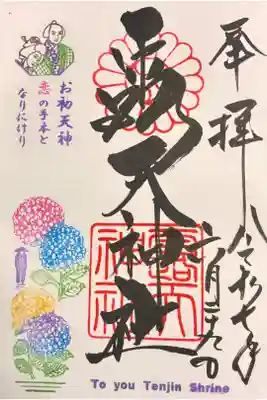 奉拝
令和七年
六月二十九日
露天神社
露天神社
お初天神
恋の手本と
なりにけり
To you Tenjin Shrine